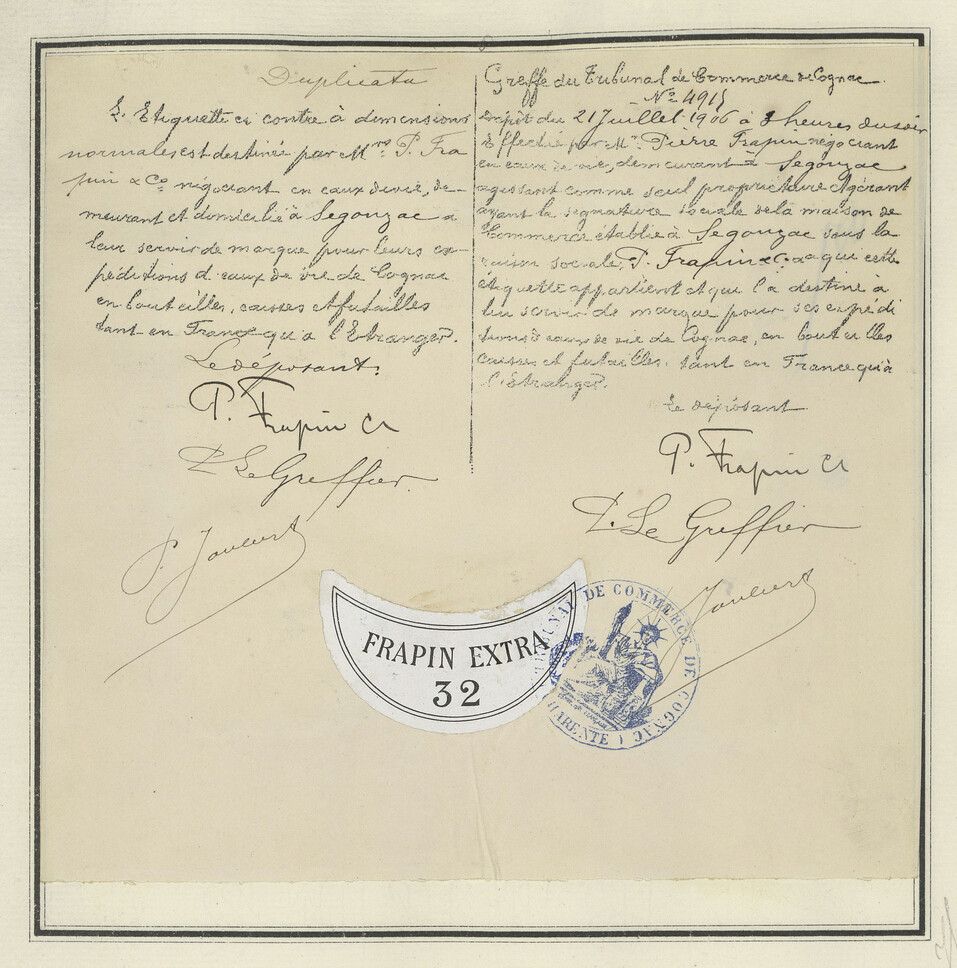 Duplicata
L'Etiquette ci contre à dimensions
normales est destinée par Mrs P. Fra
pin & Co négociant en eaux de vie, de-
meurant et domicilié à Segonzac a
leur servir de marque pour leurs ex-
péditions d'eaux de vie de Cognac
en bouteilles, caisses et futailles
tant en France qu'à l'Etranger.
Le déposant.
P. Frapin Co
P. Le Greffier.
Greffe du Tribunal de Commerce de Cognac
No 4915
Dépôt du 21 Juillet 1906 à 3 heures du soir
Effectué par Mr Pierre Frapin négociant
en eaux de vie, demeurant à Segonzac
agissant comme seul propriétaire et gérant
ayant la signature sociale de la maison de
Commerce établie à Segonzac sous la
raison sociale P. Frapin & Co a que cette
étiquette appartient et qui l'a destiné à
lui servir de marque pour ses expédi
tions d'eaux de vie de Cognac, en bouteilles
caisses et futailles, tant en France qu'à
l'Etranger.
Le déposant
P. Frapin Co
P. Le Greffier
FRAPIN EXTRA
32
TRIBUNAL DE COMMERCE DE COGNAC
CHARENTE